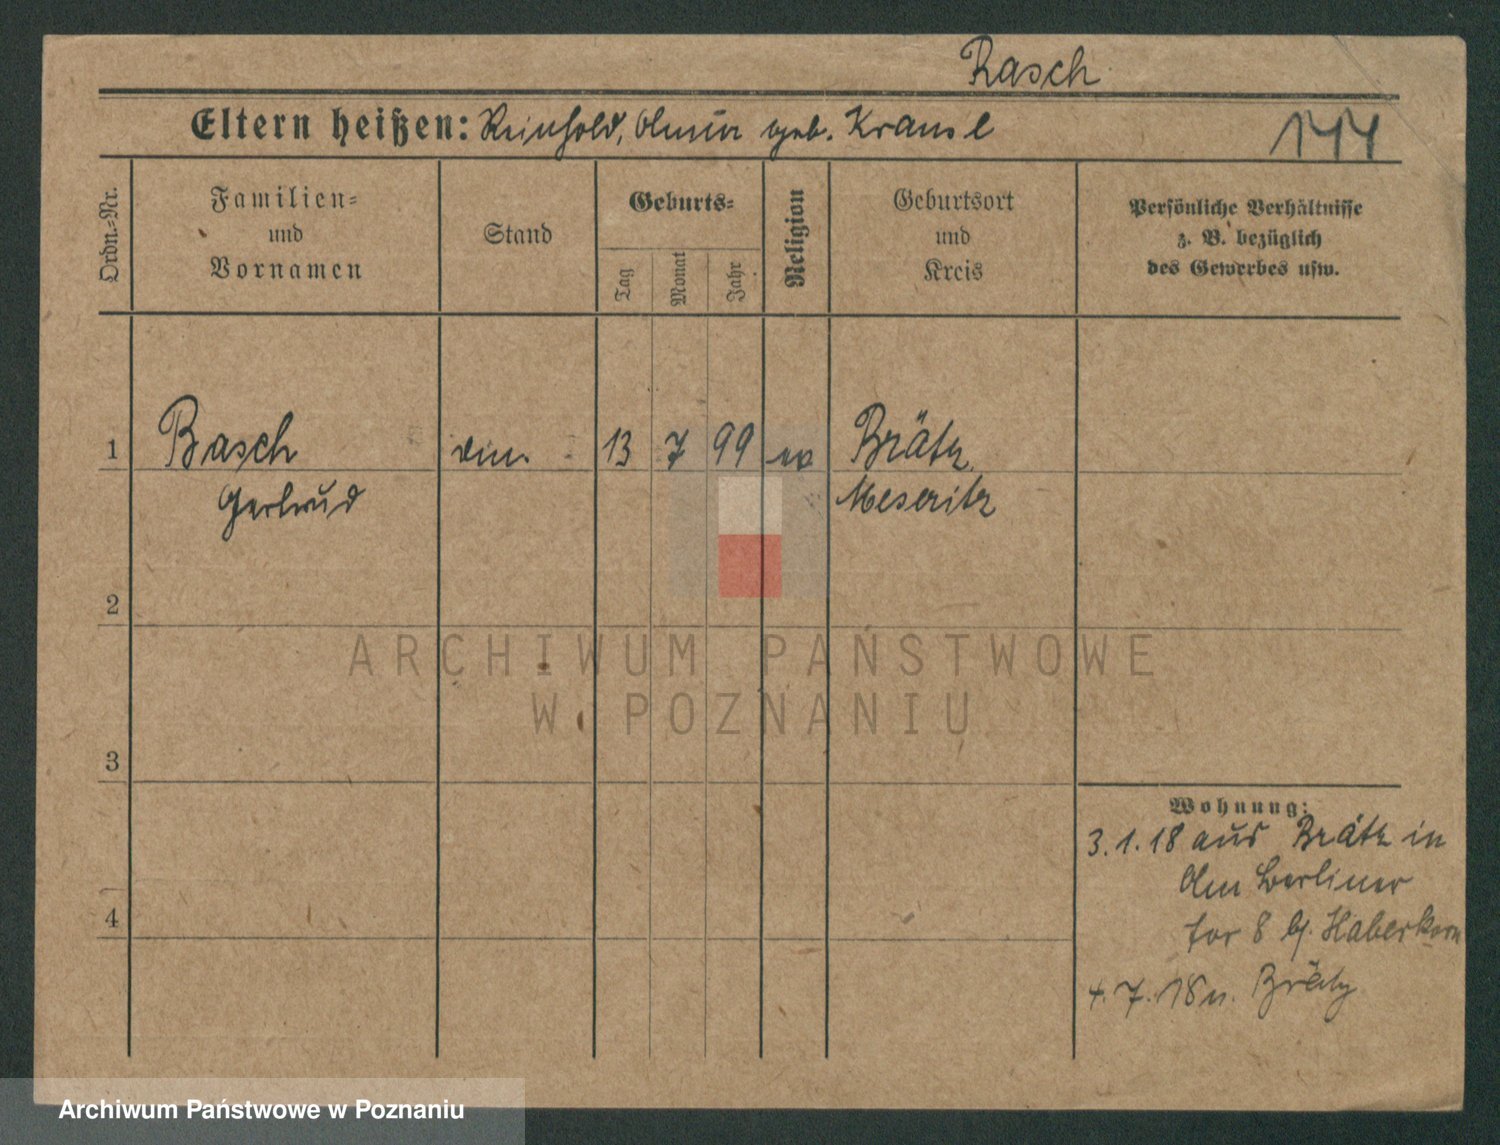 Rasch
Eltern heißen: Reinhold, Anna geb. Krause
144
Ordn.-Nr.
Familien-
und
Vornamen
Stand
Geburts-
Tag
Monat
Jahr
Religion
Geburtsort
und
Kreis
Persönliche Verhältnisse
z. B. bezüglich
des Gewerbes usw.
1 Rasch 13 7 99 ev Brätz
Gertrud Meseritz
2
ARCHIWUM PAŃSTWOWE
W POZNANIU
3
Wohnung:
3.1.18 aus Brätz in
Am Berliner
tor 8 b/. Haberkorn
4
4.7.18 n. Brätz
Archiwum Państwowe w Poznaniu